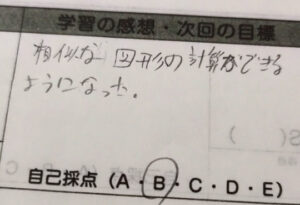 学習の感想・次回の目標
相似な図形の計算ができる
ようになった。
自己採点(A・B・C・D・E)